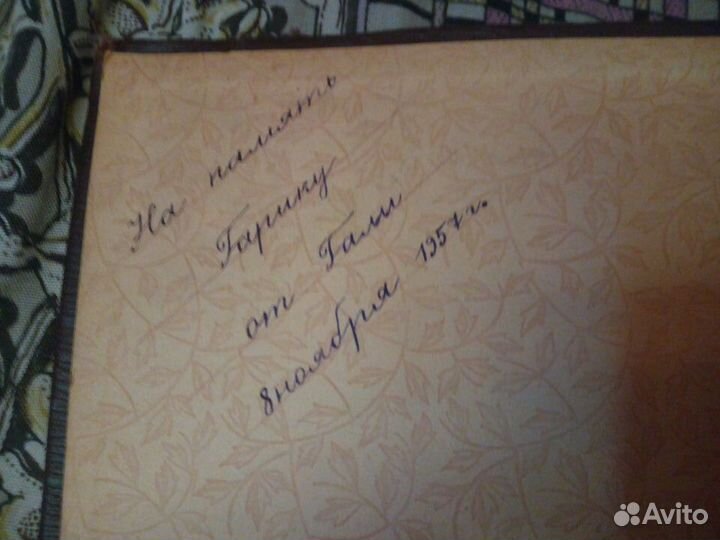 На память
Гарику
от Гали
8 ноября 1957 г.
Avito